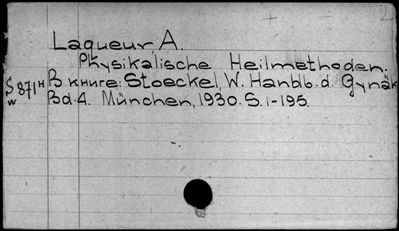 Laqueur, A.
Physikalische Heilmethoden.
S 871 H В книге: Stoeckel, W. Handb. d. Gynäk
w Bd. 4. München, 1930. S. 1-195.